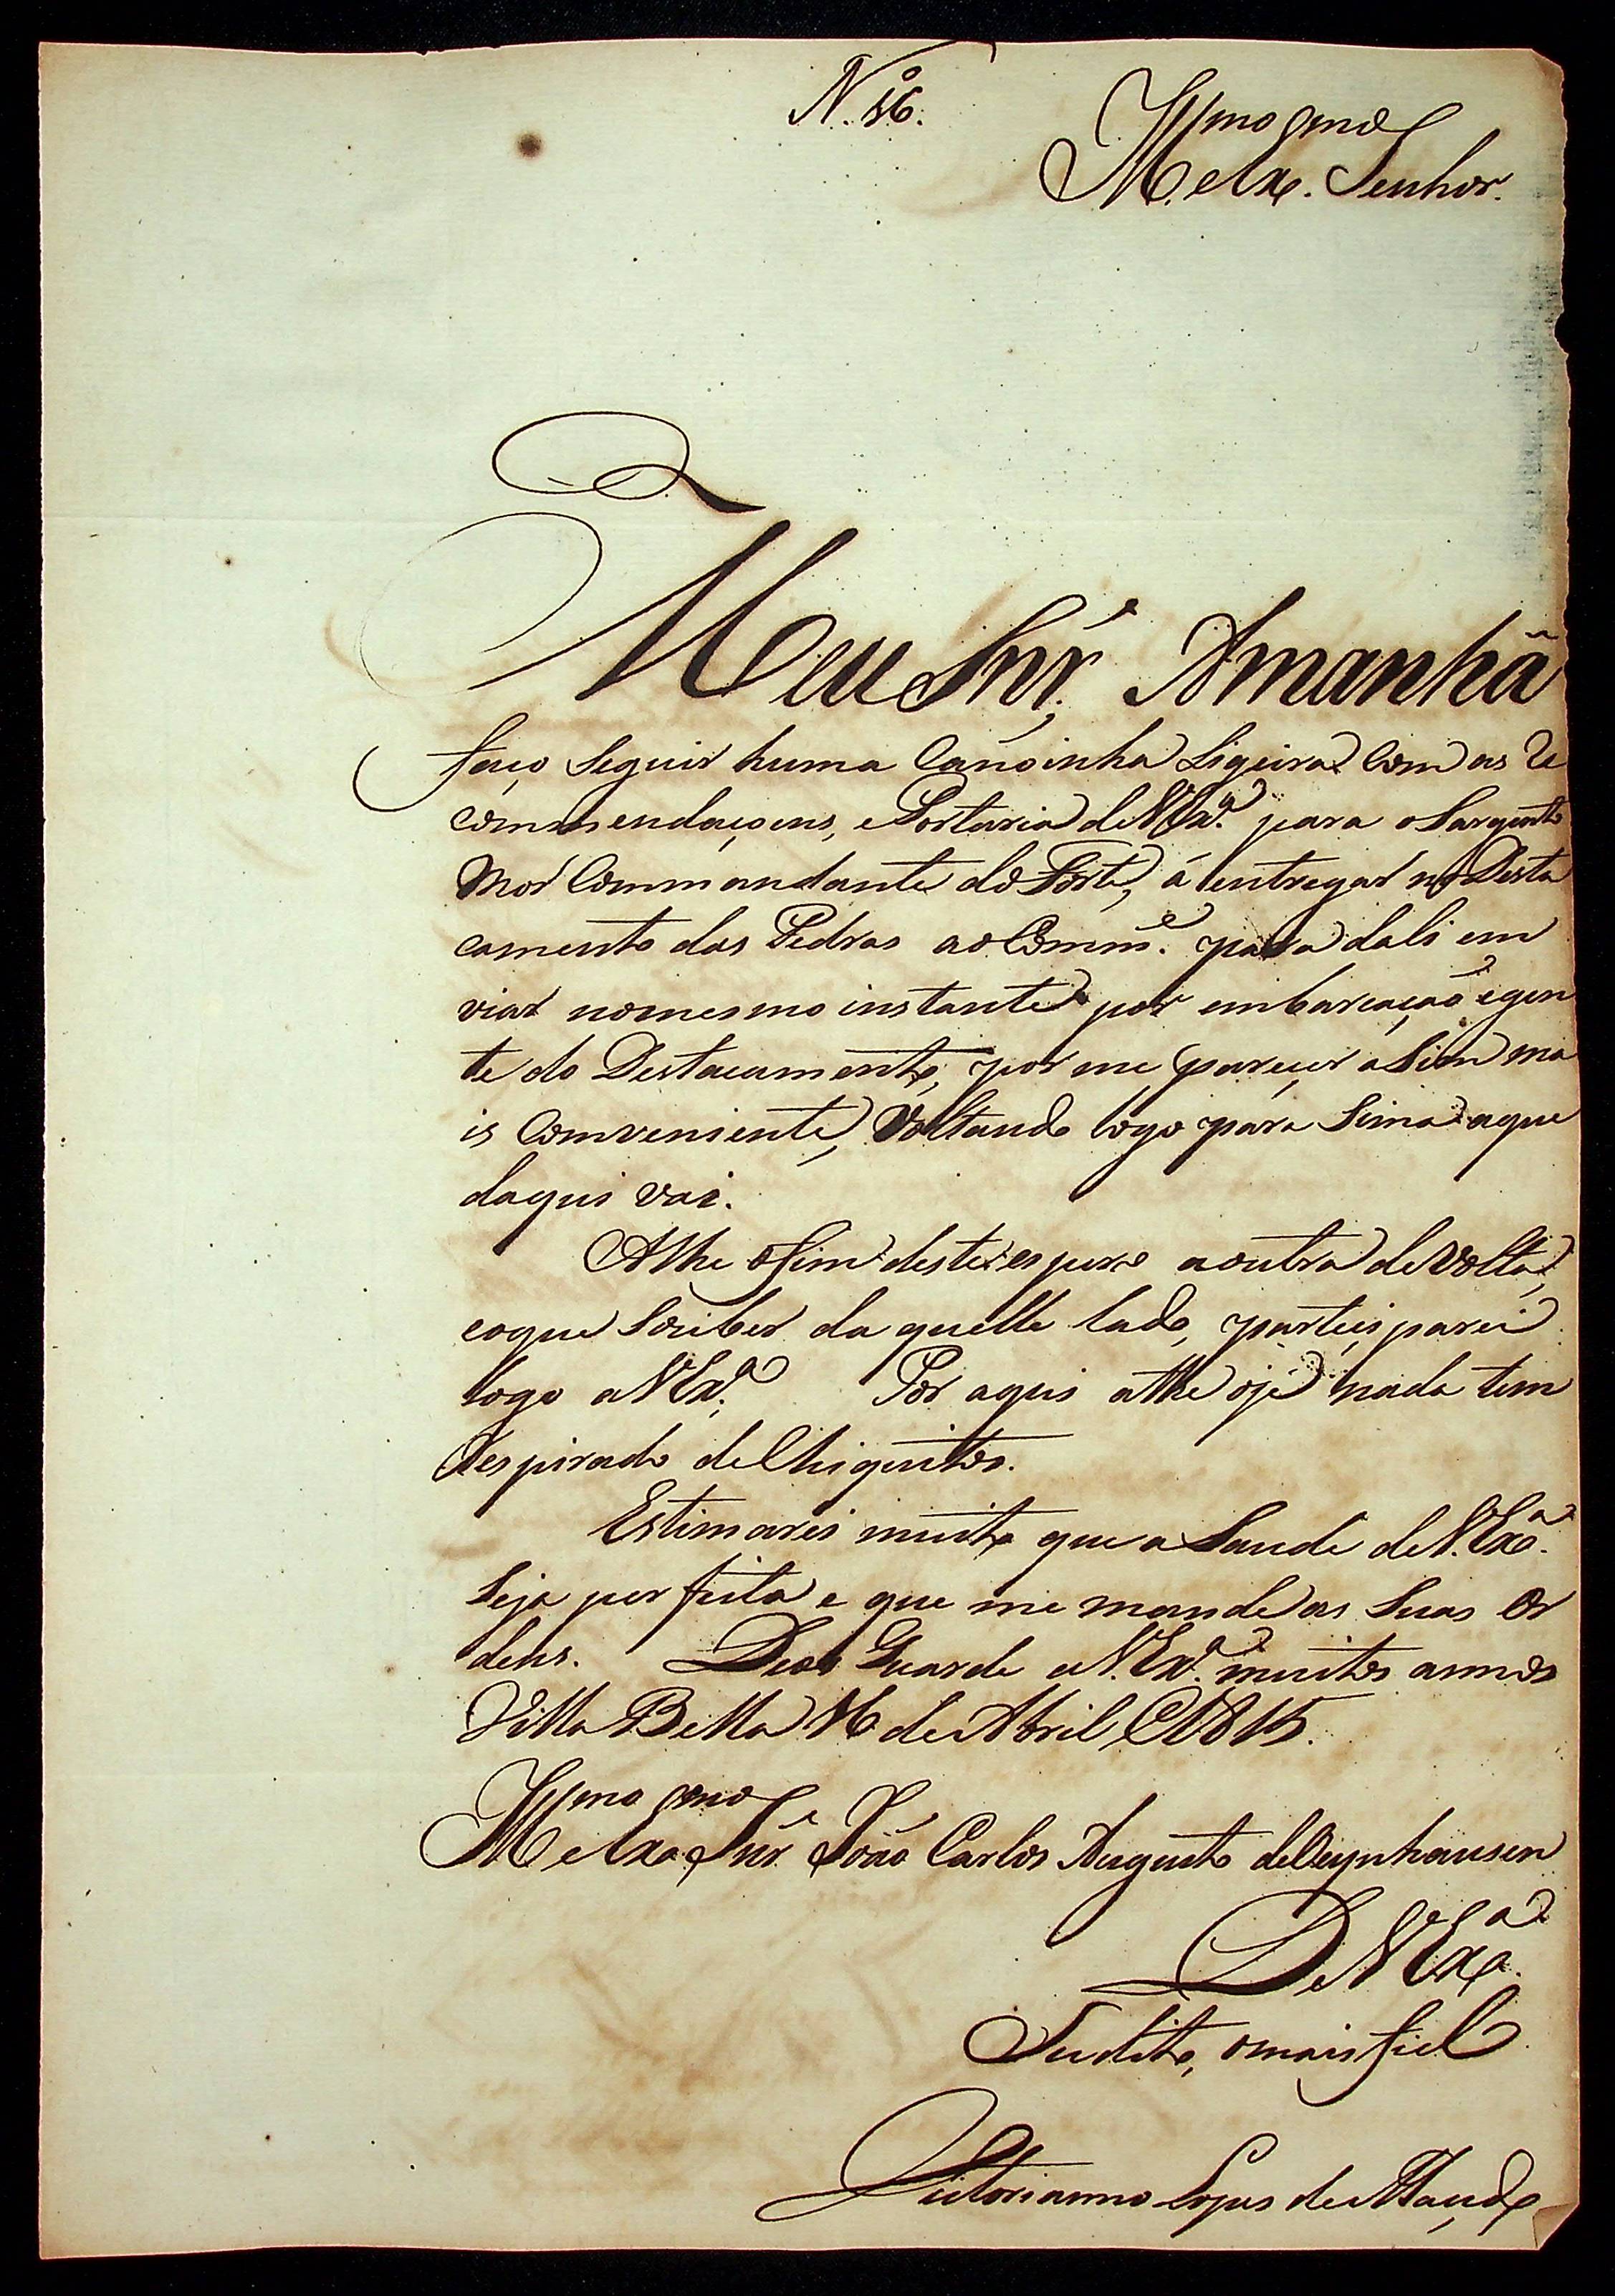 N. 16.
Illmo e Exmo Senhor.
Meu Snr̃. Amanhã
faço Seguir huma Canoinha Ligeira Com as Re
commendaçoens, e Portaria de V. Exª. para o Sargento
Mor Commandante do Forte, á entregar no Desta
camento das Pedras ao Commᵉ. para dali em
viar no mesmo instante por embarcação e gen
te do Destacamento, por me pareçer aSim ma
is Comveniente, Voltando logo para Sima a que
daqui vai.
Athe o fim deste espero a outra de volta,
e o que Souber da quelle lado, parteçiparei
logo a V Exª. Por aqui athe oje nada tem
respirado de Chiquitos.
Estimarei muito que a Saude de V. Exª.
Seja perfeita e que me mande as Suas Or
dens. Deos Guarde a V. Exª. muitos annos
Villa Bella 16 de Abril de 1815.
Illmo e Exmo Snr̃. João Carlos Augusto de Oeynhausen
De V Exª.
Sudito, o mais fiel
Victorianno Lopes de